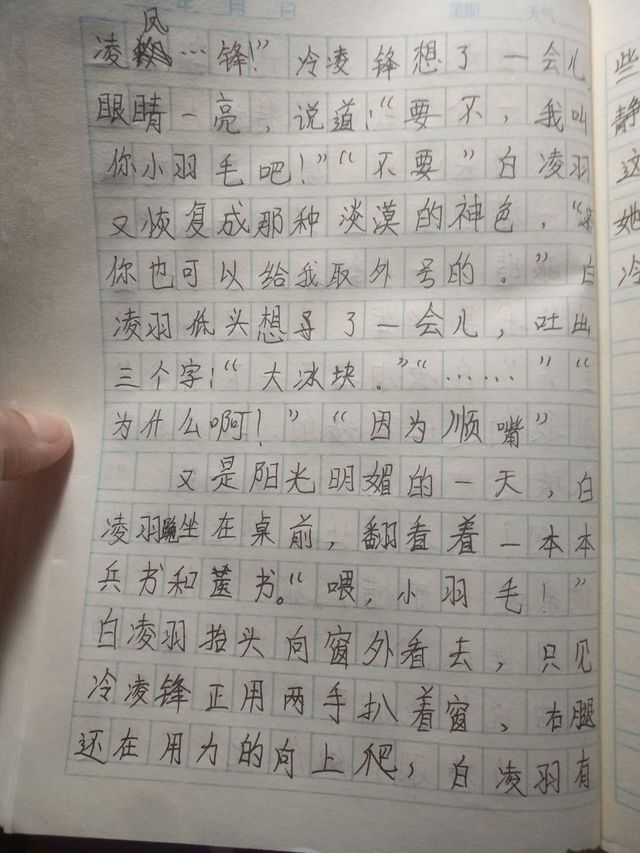 年 月 日 天气
凌凤…锋！”冷凌锋想了一会儿
眼睛一亮，说道：“要不，我叫
你小羽毛吧！”“不要”白凌羽
又恢复成那种淡漠的神色，“
你也可以给我取外号的。”白
凌羽低头想寻了一会儿，吐出
三个字：“大冰块。”“……”“
为什么啊！”“因为顺嘴”
又是阳光明媚的一天，白
凌羽坐在桌前，翻看着一本本
兵书和书。“喂，小羽毛！”
白凌羽抬头向窗外看去，只见
冷凌锋正用两手扒着窗，右腿
还在用力的向上爬，白凌羽有
些
静
这
她
冷